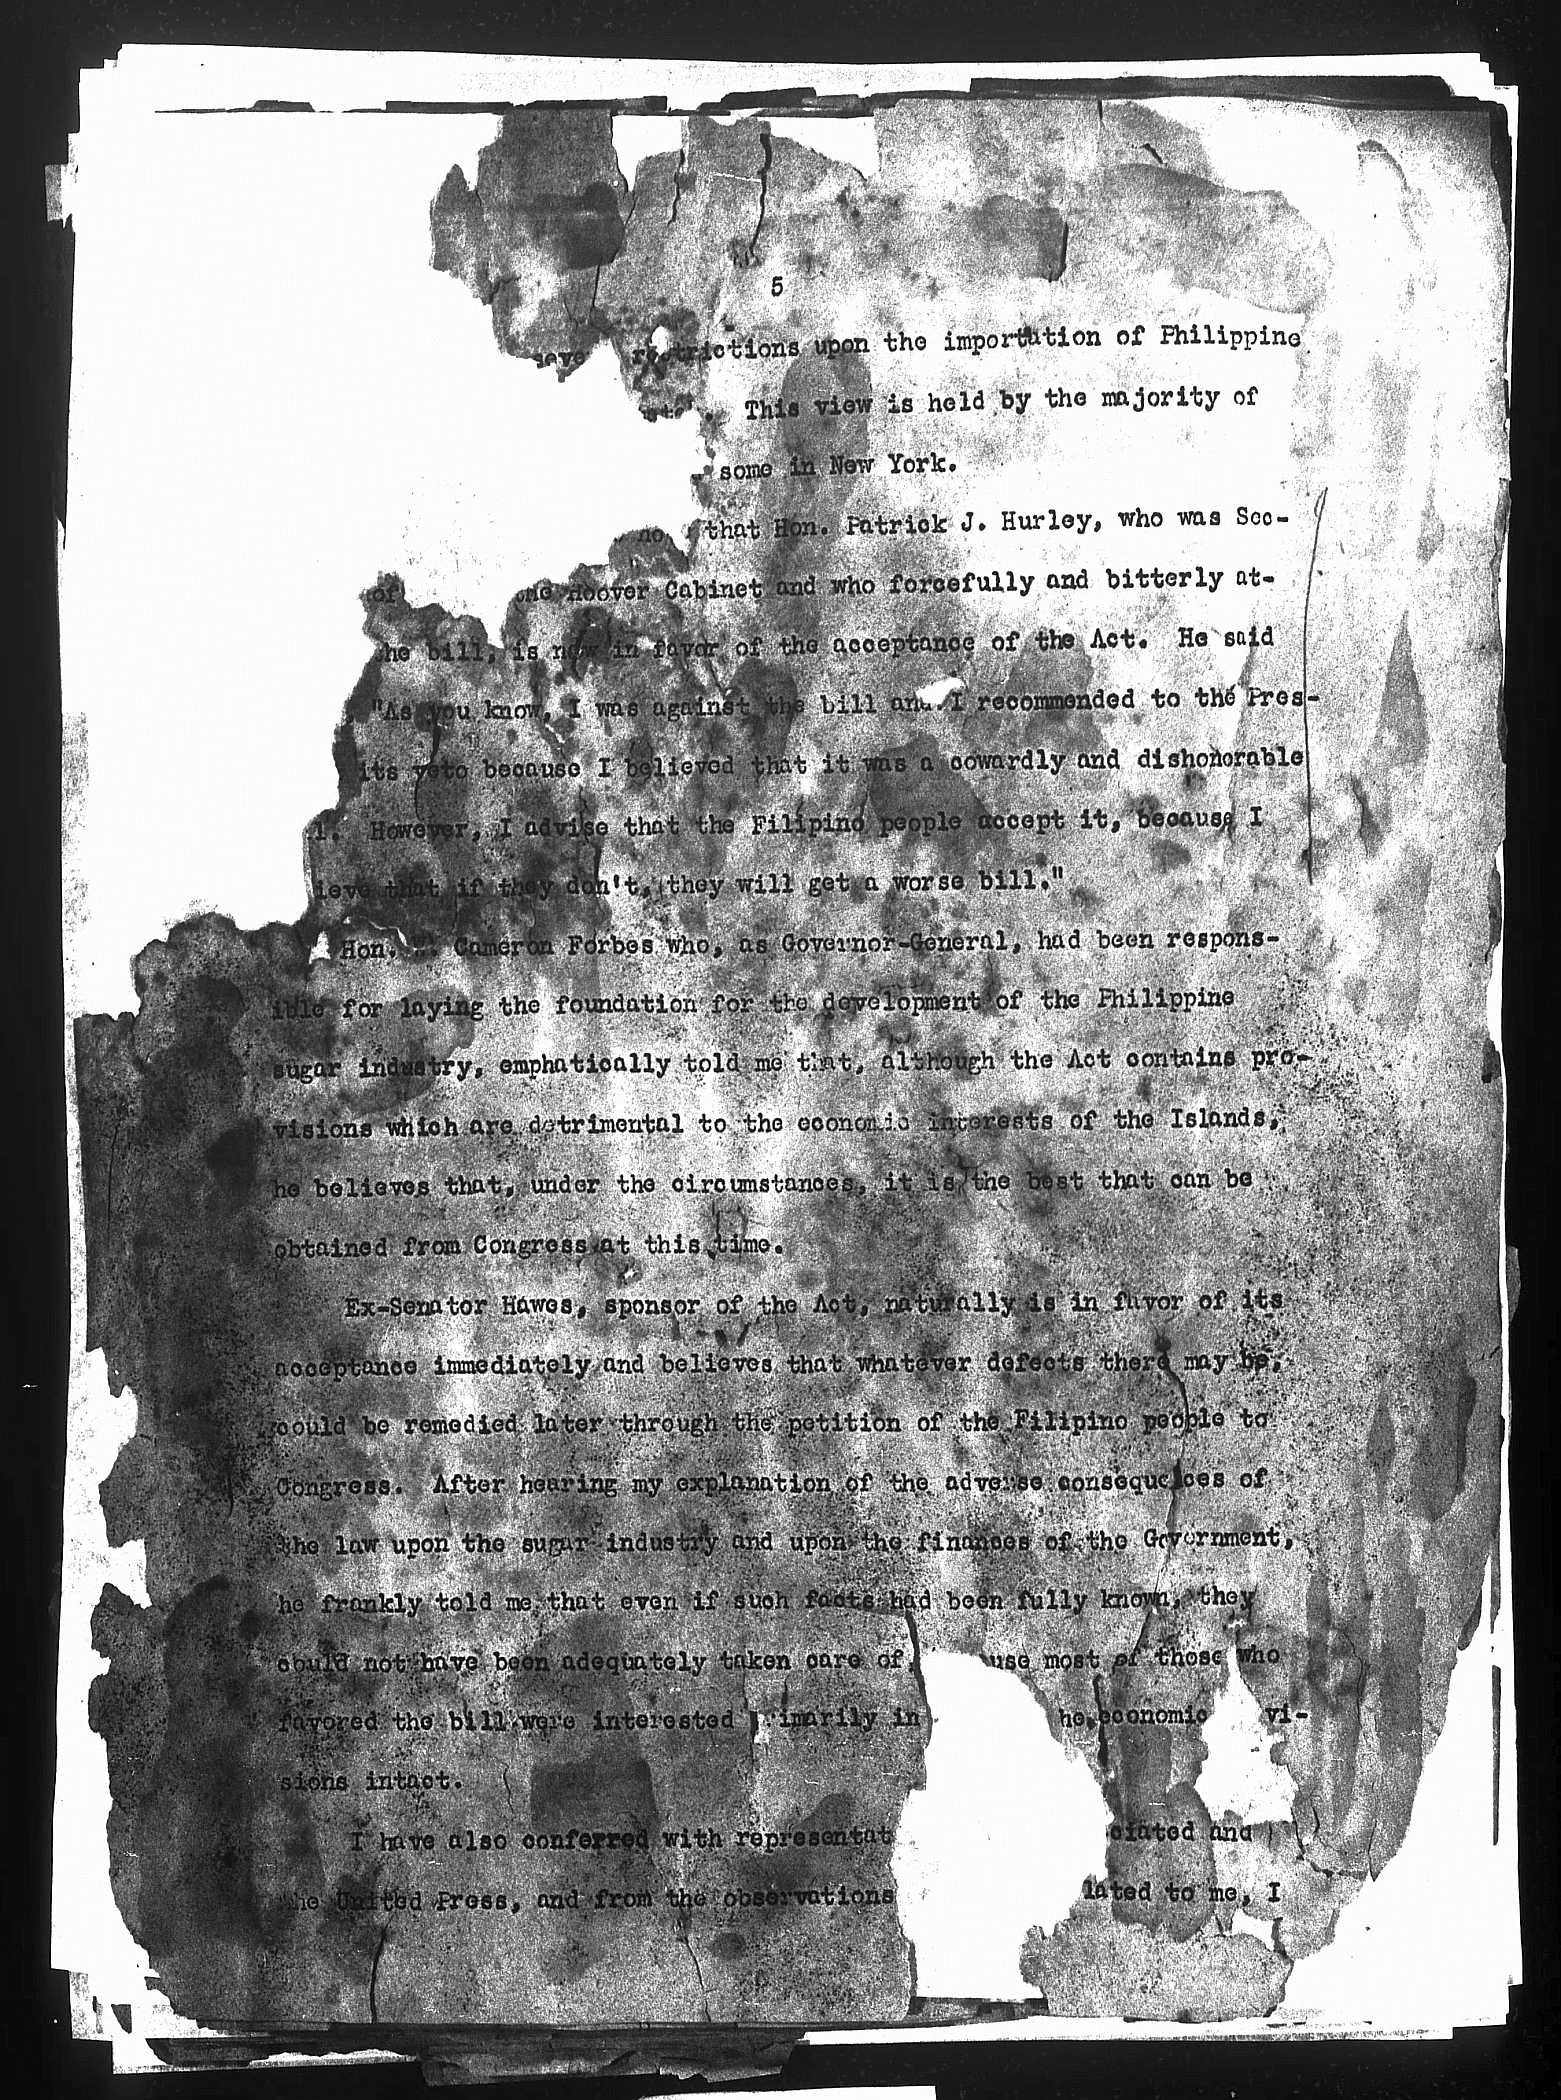 5
restrictions upon the importation of Philippine
This view is held by the majority of
some in New York.
that Hon. Patrick J. Hurley, who was Sec-
of Hoover Cabinet and who forcefully and bitterly at-
he bill, is now in favor of the acceptance of the Act. He said
"As you know, I was against the bill and I recommended to the Pres-
its veto because I believed that it was a cowardly and dishonorable
However, I advise that the Filipino people accept it, because I
ieve that if they don't, they will get a worse bill."
Hon. Cameron Forbes who, as Governor-General, had been respons-
ible for laying the foundation for the development of the Philippine
sugar industry, emphatically told me that, although the Act contains pro-
visions which are detrimental to the economic interests of the Islands,
he believes that, under the circumstances, it is the best that can be
obtained from Congress at this time.
Ex-Senator Hawes, sponsor of the Act, naturally is in favor of its
acceptance immediately and believes that whatever defects there may be,
could be remedied later through the petition of the Filipino people to
Congress. After hearing my explanation of the adverse consequences of
the law upon the sugar industry and upon the finances of the Government,
he frankly told me that even if such facts had been fully known, they
could not have been adequately taken care of, use most of those who
favored the bill were interested primarily in he economic vi-
sions intact.
I have also conferred with representat ciated and
he United Press, and from the observations lated to me, I